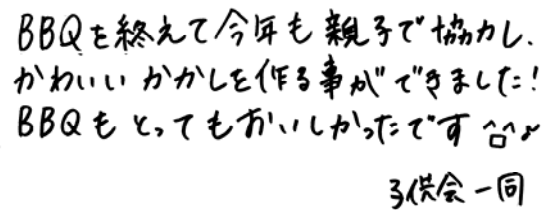 BBQを終えて今年も親子で協力し、
かわいいかかしを作る事ができました!
BBQもとってもおいしかったです ^ロ^♪
子供会一同